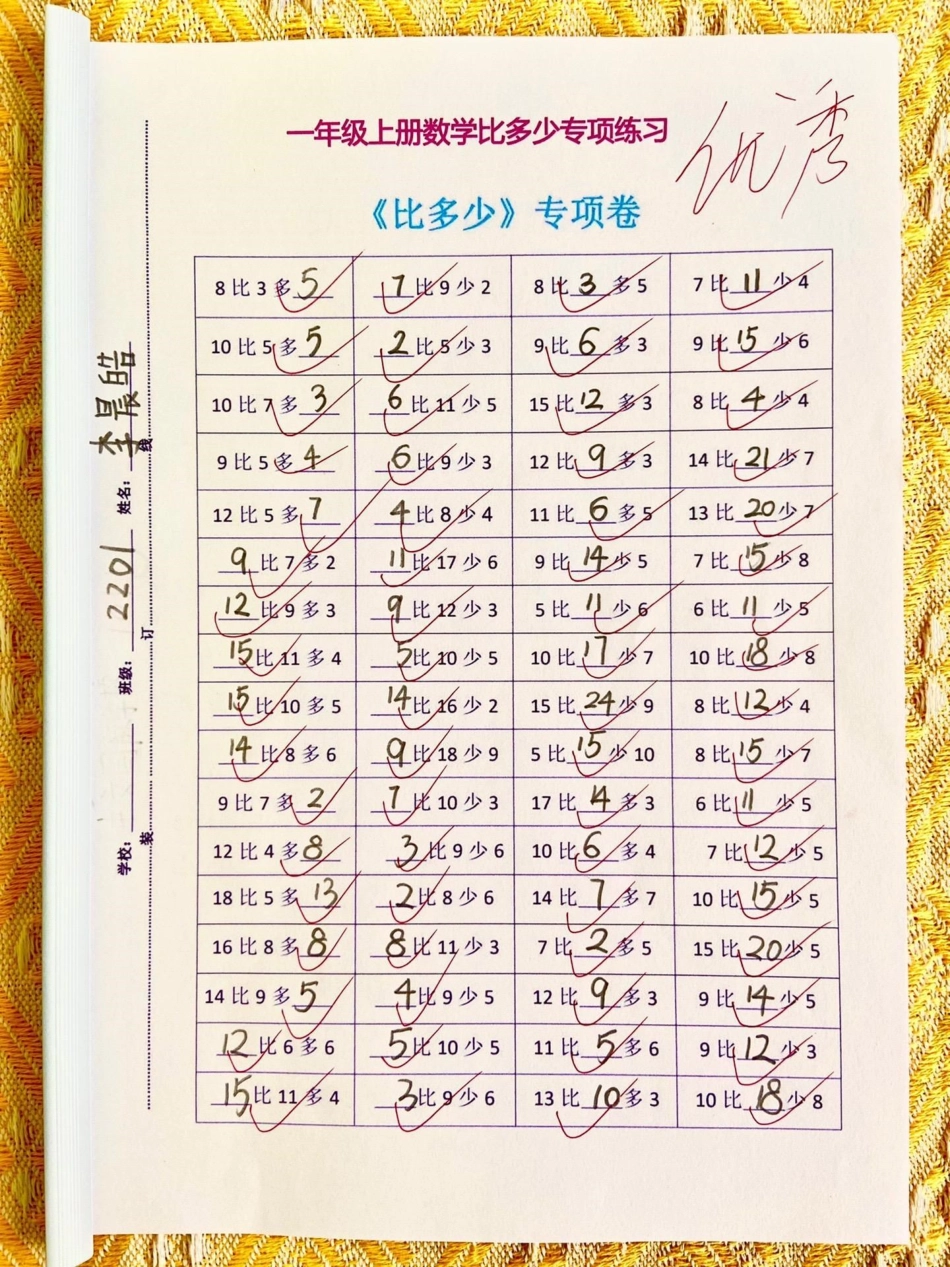 一年级上册数学比多少专项练习
优秀
《比多少》专项卷
8比3多5 7比9少2 8比3多5 7比11少4
10比5多5 2比5少3 9比6多3 9比15少6
10比7多3 6比11少5 15比12多3 8比4少4
9比5多4 6比9少3 12比9多3 14比21少7
12比5多7 4比8少4 11比6多5 13比20少7
9比7多2 11比17少6 9比14少5 7比15少8
12比9多3 9比12少3 5比11少6 6比11少5
15比11多4 5比10少5 10比17少7 10比18少8
15比10多5 14比16少2 15比24少9 8比12少4
14比8多6 9比18少9 5比15少10 8比15少7
9比7多2 7比10少3 17比14多3 6比11少5
12比4多8 3比9少6 10比6多4 7比12少5
18比5多13 2比8少6 14比7多7 10比15少5
16比8多8 8比11少3 7比2多5 15比20少5
14比9多5 4比9少5 12比9多3 9比14少5
12比6多6 5比10少5 11比5多6 9比12少3
15比11多4 3比9少6 13比10多3 10比18少8
学校： 班级：2201 姓名：李晨皓
装 订 线